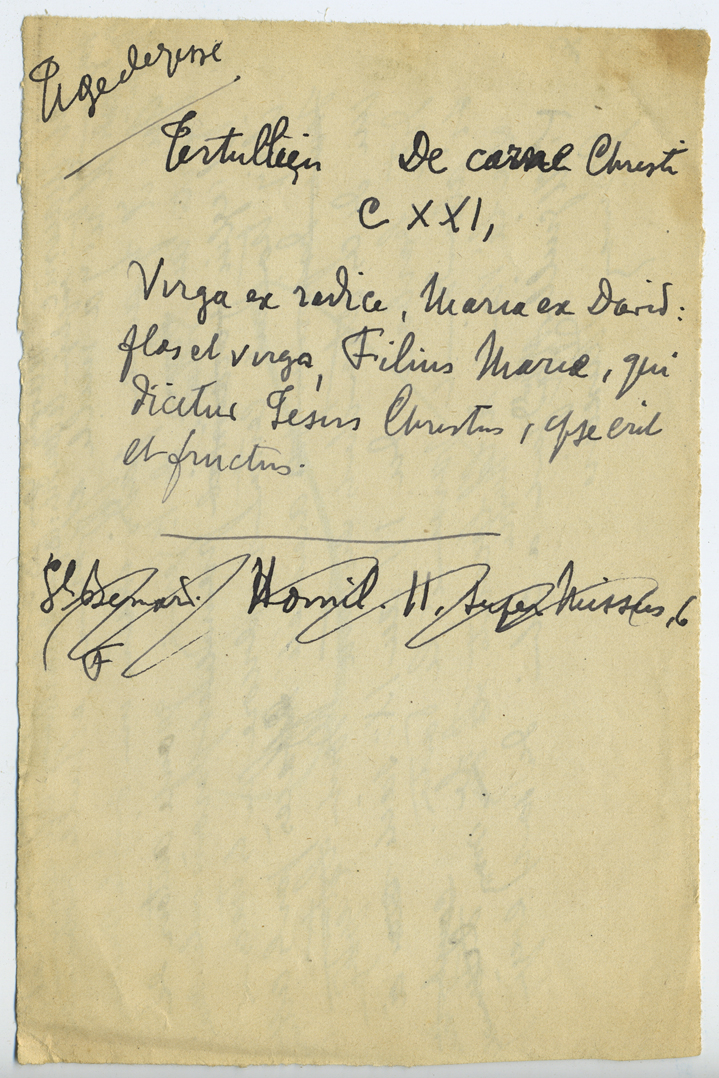 Tige de Jessé
Tertullien De carne Christi
C XXI,
Virga ex radice, Maria ex David:
flos et virga, Filius Mariæ, qui
dicitur Jésus Christus, ipse erit
et fructus.
St Bernard. Homil. II. Super Missus, 6